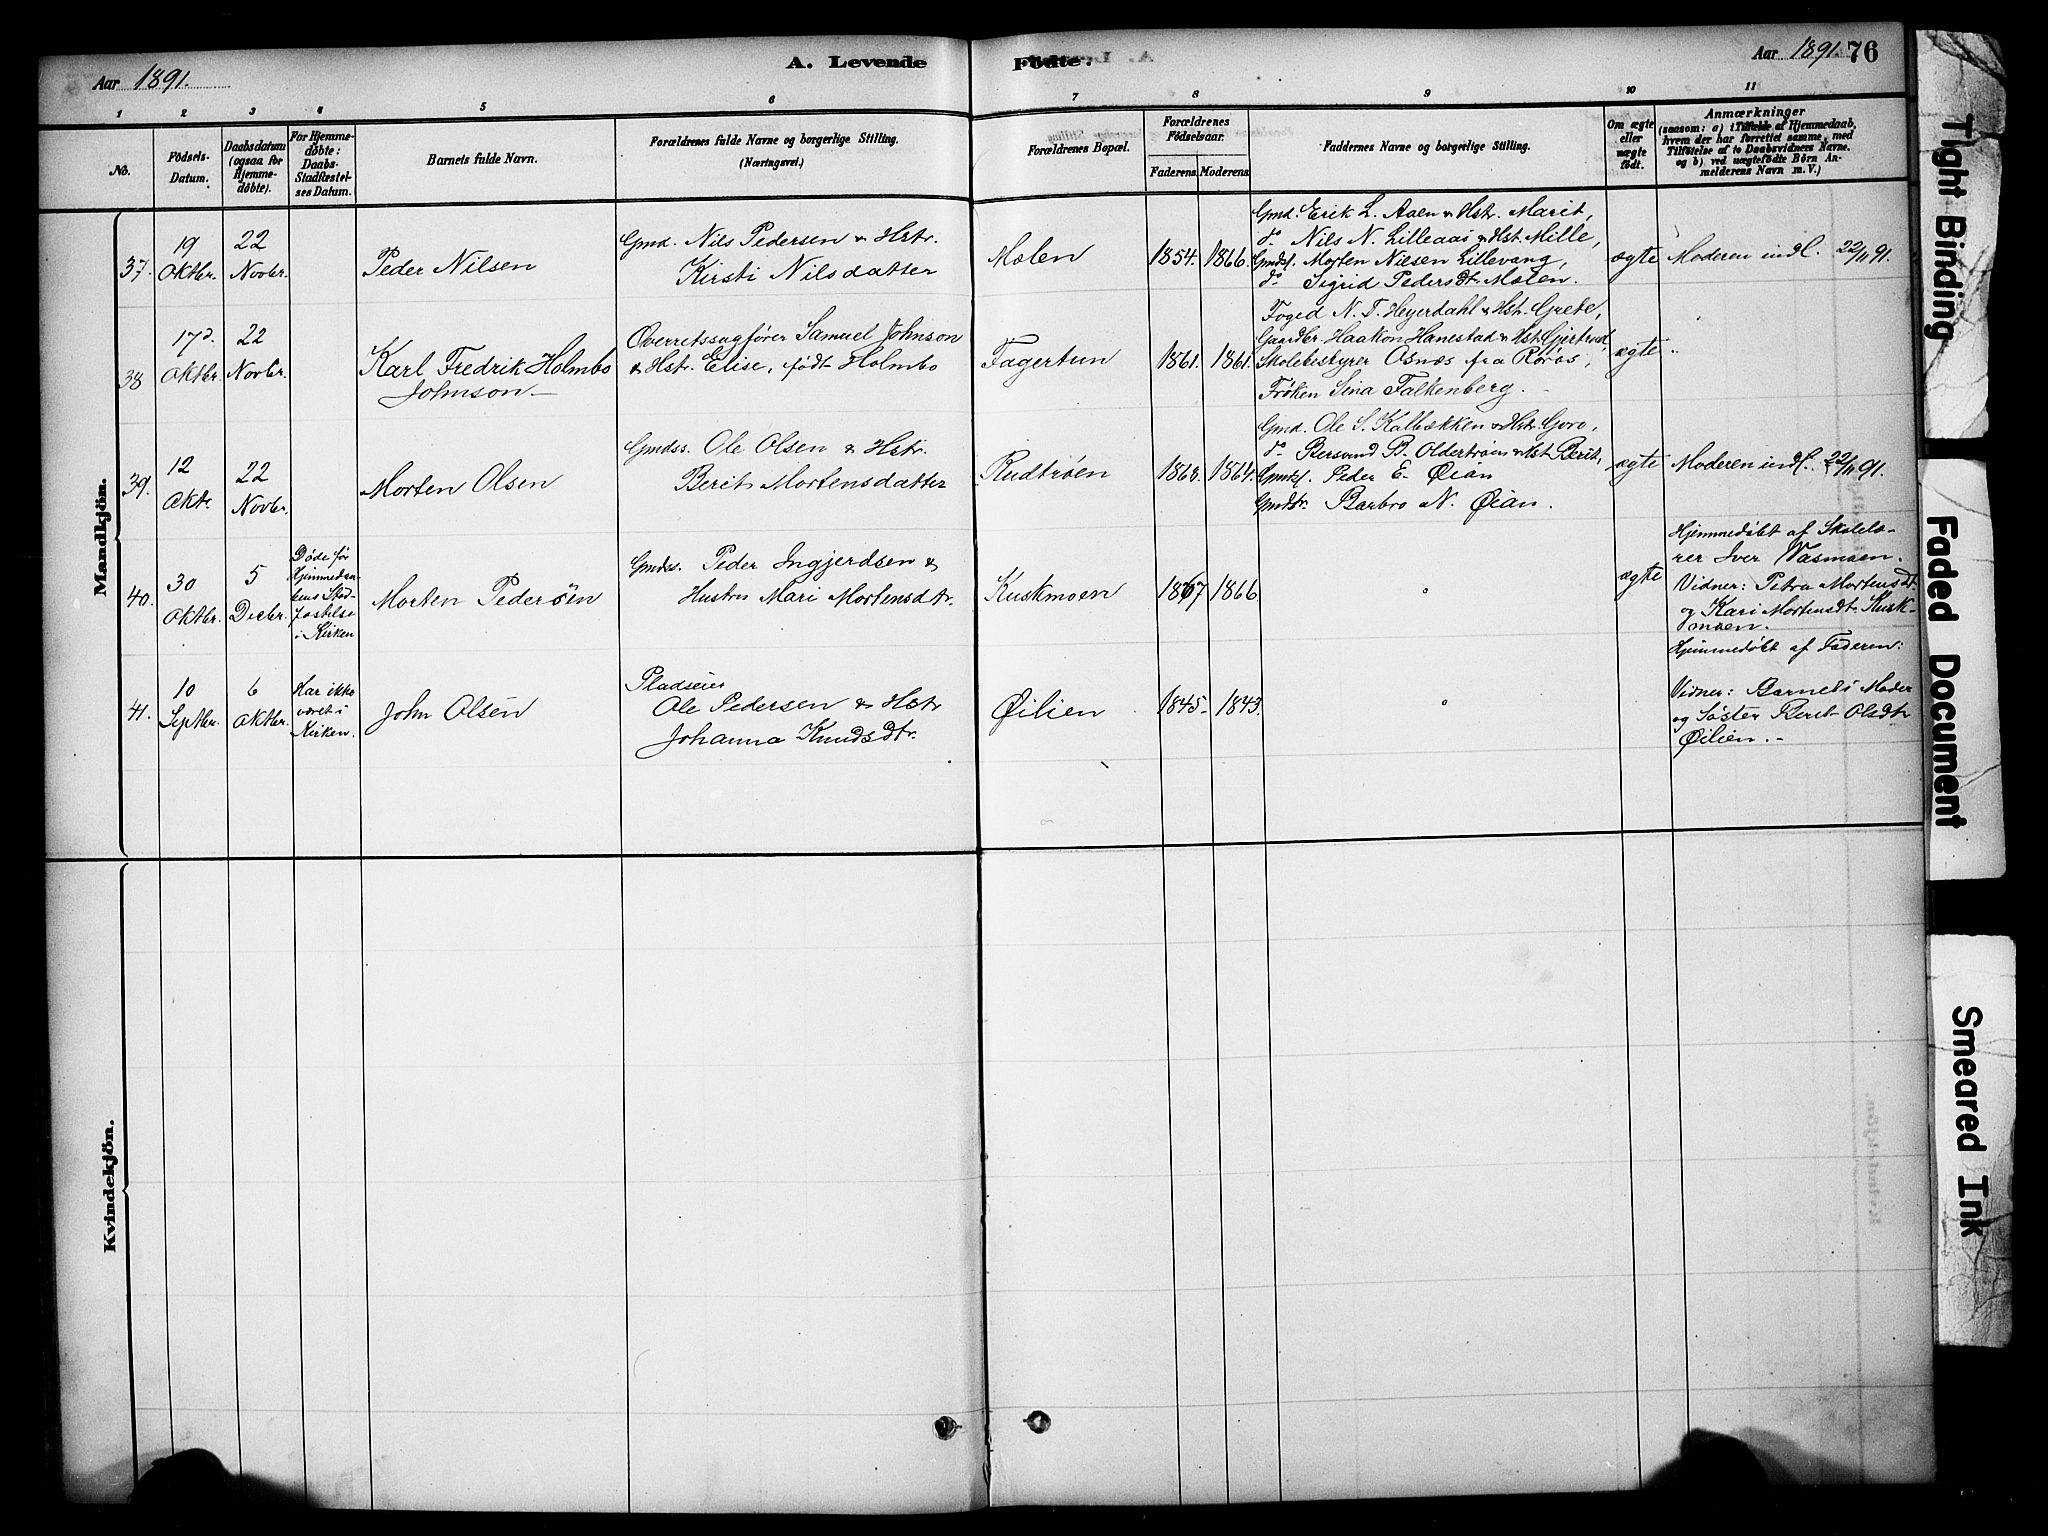 Aar 1891.
A. Levende
Födte.
Aar 1891. 76
1 2 3 4 5 6 7 8 9 10 11
No.
Födsels-
Datum.
Daabsdatum
(ogsaa for
Hjemme-
döbte).
For Hjemme-
döbte:
Daabs-
Stadfæstel-
ses Datum.
Barnets fulde Navn.
Forældrenes fulde Navne og borgerlige Stilling.
(Næringsvei.)
Forældrenes Bopæl.
Forældrenes
Fødselsaar.
Faderens. Moderens.
Faddernes Navne og borgerlige Stilling.
Om ægte
eller
uægte
født.
Anmærkninger
(saasom: a) i Tilfælde af Hjemmedaab,
hvem der har forrettet samme, med
Tilføielse af to Daabsvidners Navne.
og b) ved uægtefödte Börn An-
melderens Navn m.V.)
Mandkjön.
37.
19
Oktbr.
22
Novbr.
Peder Nilsen
Gmd. Nils Pedersen & Hstr.
Kirsti Nilsdatter
Molen
1854. 1866.
Gmd. Erik L. Aaen & Hstr. Marit,
do Nils N. Lilleaas & Hst. Mille,
Gmdsf. Morten Nilsen Lillevang,
do Sigrid Pedersdt. Molen.
ægte
Moderen indl. 22/11 91.
38
17d.
Oktbr.
22
Novbr.
Karl Fredrik Holmbo
Johnson
Overretssagfører Samuel Johnson
& Hstr. Elise, født Holmbo
Fagertun
1861. 1861.
Foged N. T. Heyerdahl & Hst. Grete,
Gaardbr. Haakon Hanestad & Hst. Gjertrud,
Skolebestyrer Osnæs fra Røros,
Frøken Sina Falkenberg.
ægte
39.
12
Oktr.
22
Novbr.
Morten Olsen
Gmdss. Ole Olsen & Hstr.
Berit Mortensdatter
Rudtrøen
1868. 1864.
Gmd. Ole S. Kalbækken & Hstr. Goro,
do Bersvend B. Oldertrøen & Hst. Berit,
Gmdsf. Peder E. Øian
Gmdstr. Barbro N. Øian.
ægte
Moderen indl. 22/11 91.
40.
30
Oktbr.
5
Decbr.
Døde før
Hjemmedaa-
bens Stad-
fæstelse
i Kirken
Morten Pedersen
Gmdss. Peder Ingjerdsen &
Hustru Mari Mortensdtr.
Kuskmoen
1867 1866.
ægte
Hjemmedøbt af Skolelæ-
rer Iver Vasmoen.
Vidner: Petra Mortensdt.
og Kari Mortensdt. Kusk-
moen.
41.
10
Septbr.
6
Oktbr.
Har ikke
været i
Kirken.
John Olsen
Pladseier
Ole Pedersen & Hstr
Johanna Knudsdtr.
Øilien
1845. 1843.
Hjemmedøbt af Faderen:
Vidner: Barnets Moder
og Søster Berit Olsdt
Øilien.
Kvindekjön.
Tight Binding
Faded Document
Smeared Ink